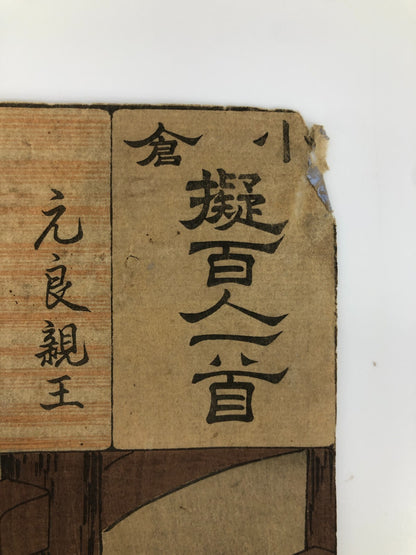 小倉
擬百人一首
元良親王